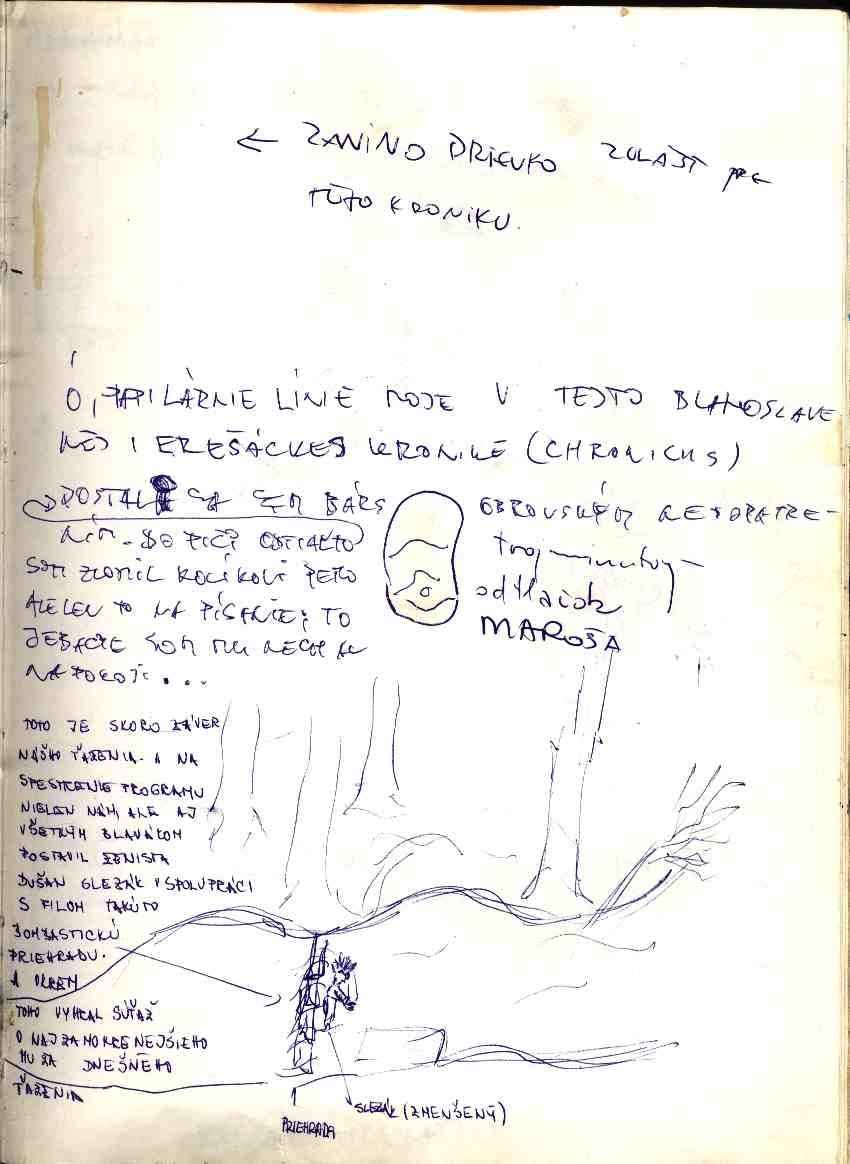 ← ZANINO DRIEVKO ZVLÁŠŤ PRE
TÚTO KRONIKU.
Ó, PAPILÁRNIE LÍNIE MOJE V TEJTO BLAHOSLAVE
NEJ I EREŠÁCKEJ KRONIKE (CHRONICUS)
DOSTALI SA SEM BÁRS
OBROVSKÝM NEDOPATRE-
NÍM. DO PIČI
SOM ZLOMIL KOCÍKOVI PERO
ALE LEN TO NA PÍSANIE; TO
JEBACIE SOM MU NECHAL
NA POKOJI...
trojminutový
odtlačok
MAROŠA
TOTO JE SKORO ZÁVER
NÁŠHO ŤAŽENIA. A NA
SPESTRENIE PROGRAMU
NIELEN NÁM, ALE AJ
VŠETKÝM BLAVÁKOM
POSTAVIL ŽENISTA
DUŠAN SLEZÁK V SPOLUPRÁCI
S FILOM TAKÚTO
BOMBASTICKÚ
PRIEHRADU.
A OKREM
TOHO VYHRAL SÚŤAŽ
O NAJZAMOKRENEJŠIEHO
MUŽA DNEŠNÉHO
ŤAŽENIA
PRIEHRADA
SLEZÁK (ZMENŠENÝ)